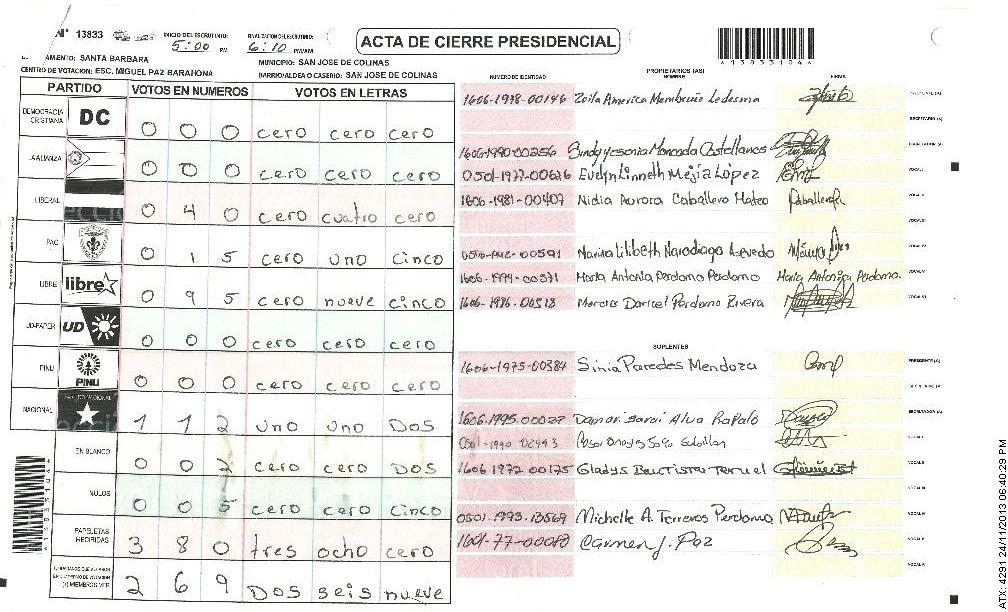 Nº 13833
INICIO DEL ESCRUTINIO: 5:00 PM
FINALIZACION DEL ESCRUTINIO: 6:10 PM/AM
ACTA DE CIERRE PRESIDENCIAL
AMENTO: SANTA BARBARA
MUNICIPIO: SAN JOSE DE COLINAS
CENTRO DE VOTACION: ESC. MIGUEL PAZ BARAHONA
BARRIO/ALDEA O CASERIO: SAN JOSE DE COLINAS
PARTIDO VOTOS EN NUMEROS VOTOS EN LETRAS
DEMOCRACIA CRISTIANA DC 0 0 0 cero cero cero
0 0 0 cero cero cero
LIBERAL 0 4 0 cero cuatro cero
PAC 0 1 5 cero uno cinco
LIBRE libre 0 9 5 cero nueve cinco
UD-FAPER UD 0 0 0 cero cero cero
PINU PINU 0 0 0 cero cero cero
NACIONAL 1 1 2 uno uno Dos
EN BLANCO 0 0 2 cero cero Dos
NULOS 0 0 5 cero cero cinco
PAPELETAS RECIBIDAS 3 8 0 tres ocho cero
2 6 9 Dos seis nueve
NUMERO DE IDENTIDAD
PROPIETARIOS (AS)
NOMBRE
FIRMA
1606-1978-00146 Zoila America Membreño Ledesma
1606-1990-00256 Sindy yesonia Moncada Castellanos
0501-1977-00626 Evelyn Linneth Mejia López
1606-1981-00407 Nidia Aurora Caballero Mateo
1606-1994-00571 Maria Antonia Perdomo Perdomo Maria Antonia Perdomo
1606-1986-00518 Marcos Daricel Perdomo Rivera
SUPLENTES
1606-1975-00384 Sinia Paredes Mendoza
1606-1995-00027
1606 1972 00175 Gladys Bautista Teruel
0501-1993-13569 Michelle A. Terreros Perdomo
1601-77-00080 Carmen J. Paz
ATX: 4291 24/11/2013 06:40:29 PM